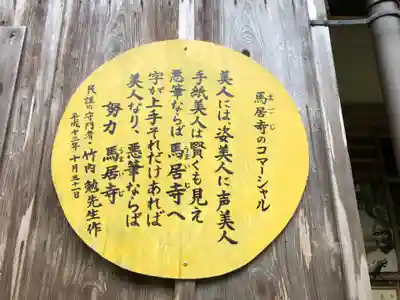 馬居寺のコマーシャル
まごじ
美人には、姿美人に声美人
手紙美人は賢くも見え
悪筆ならば馬居寺へ
うまいじ
字が上手それだけあれば
じ
美人なり、悪筆ならば
努力 馬居寺
うまいじ
民謡の守門者・竹内勉先生作
平成十三年十月三十一日